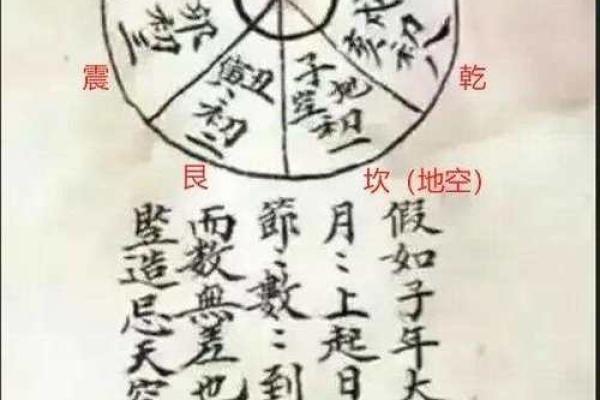 卯初三
丑寅初二
子地空初一
亥初八
震
乾
艮
坎（地空）
假如子年大
月〻上起日
節〻數〻到
而数無差也
竪造忌天空